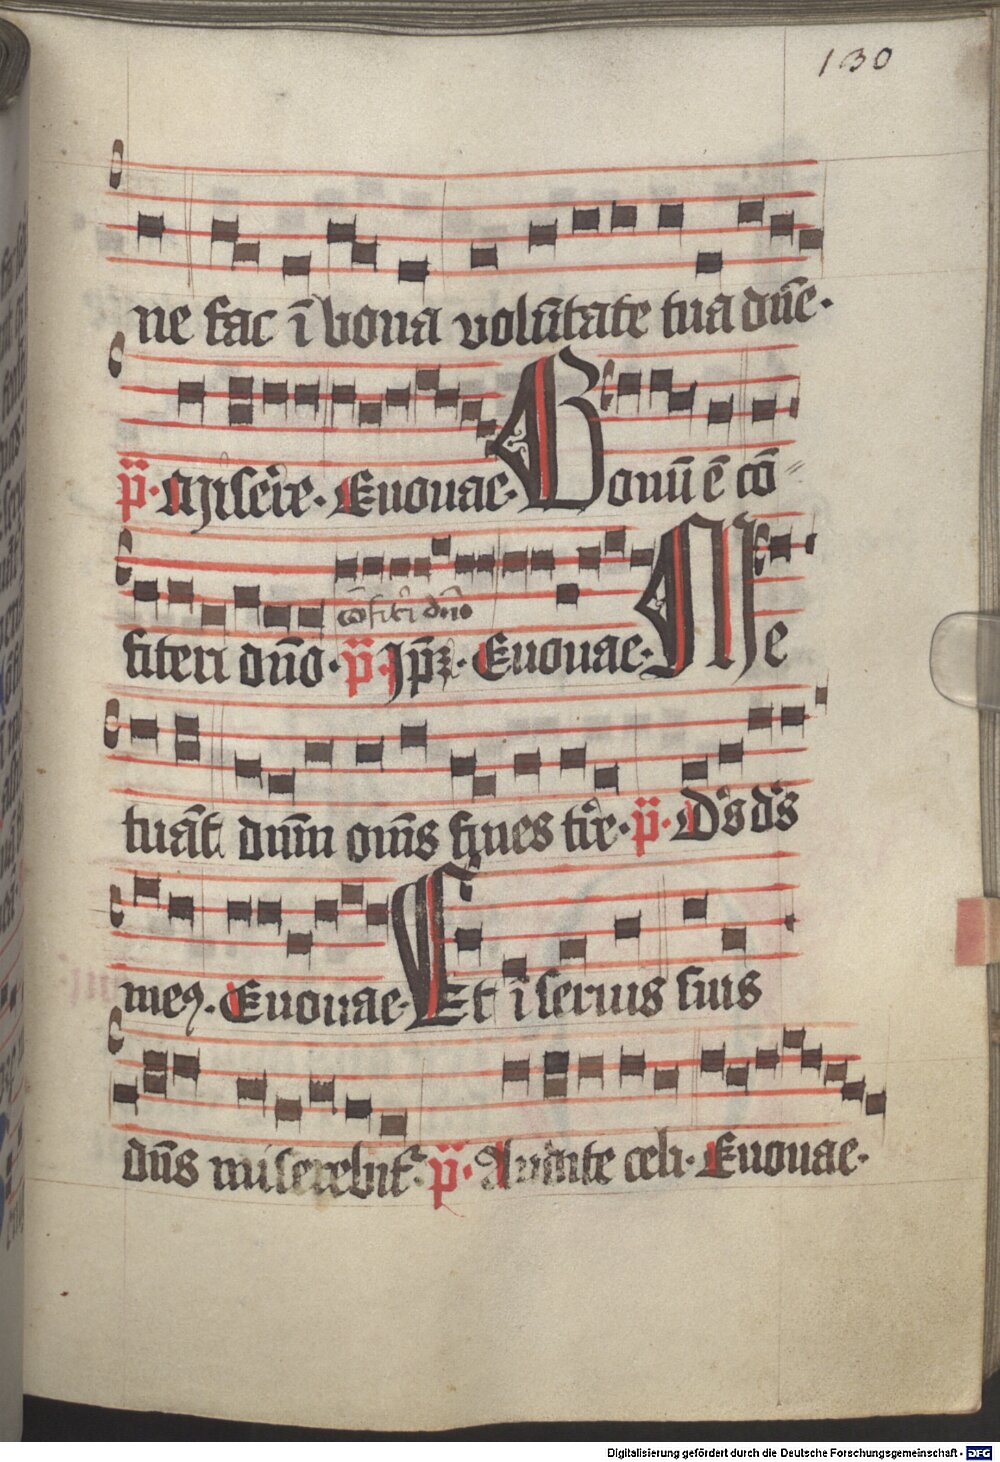 130
ne fac ī bona volūtate tua dūe.
p̄. Miser̄e. Euouae. Bonū ē cō
cōfit̄i dn̄o
fiteri dn̄o. p̄. Euouae. Me
tuāt dnm om̄s fines t̄re. p̄. Ds ds
meꝯ. Euouae. Et ī seruis suis
dn̄s miserebit̄. p̄. Audite celi. Euouae.
Digitalisierung gefördert durch die Deutsche Forschungsgemeinschaft - DFG